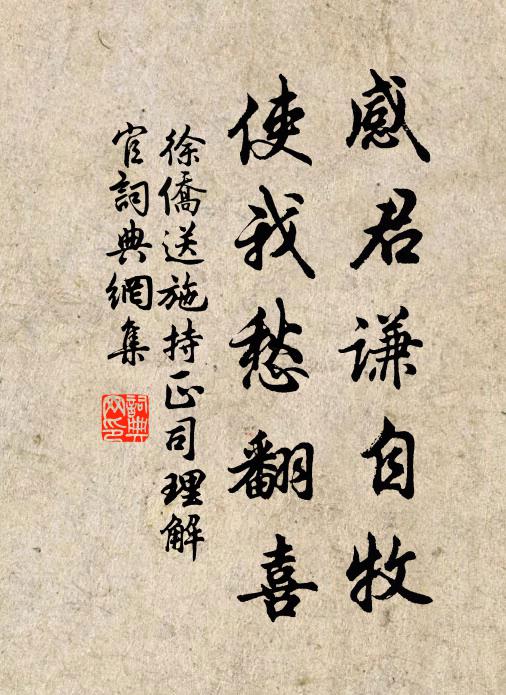 感君謙自牧
使我愁翻喜
徐僑送施持正司理解
官詞典網集
詞典網印